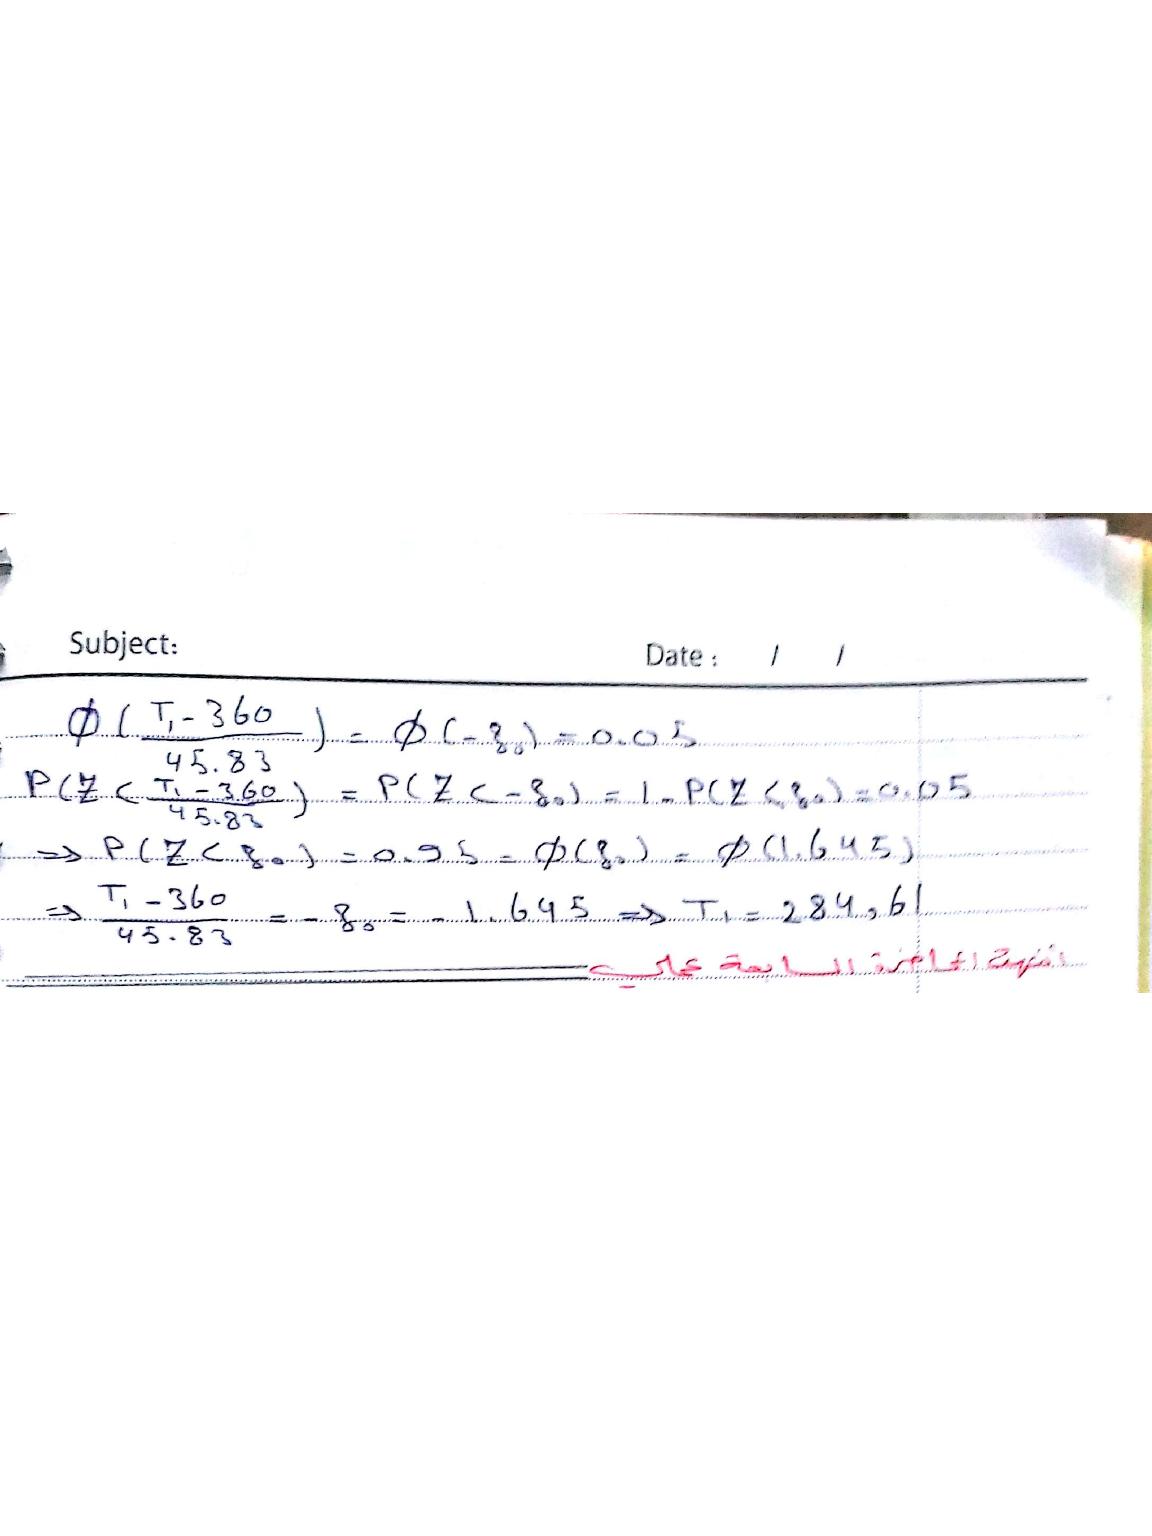 Subject:
Date : / /
Ø ( (T₁ - 360) / 45.83 ) = Ø (-z₀) = 0.05
P(Z < (T₁ - 360) / 45.83 ) = P(Z < -z₀) = 1 - P(Z < z₀) = 0.05
⇒ P(Z < z₀) = 0.95 = Ø(z₀) = Ø(1.645)
⇒ (T₁ - 360) / 45.83 = -z₀ = -1.645 ⇒ T₁ = 284,61
انتهت المحاضرة السابعة عملي